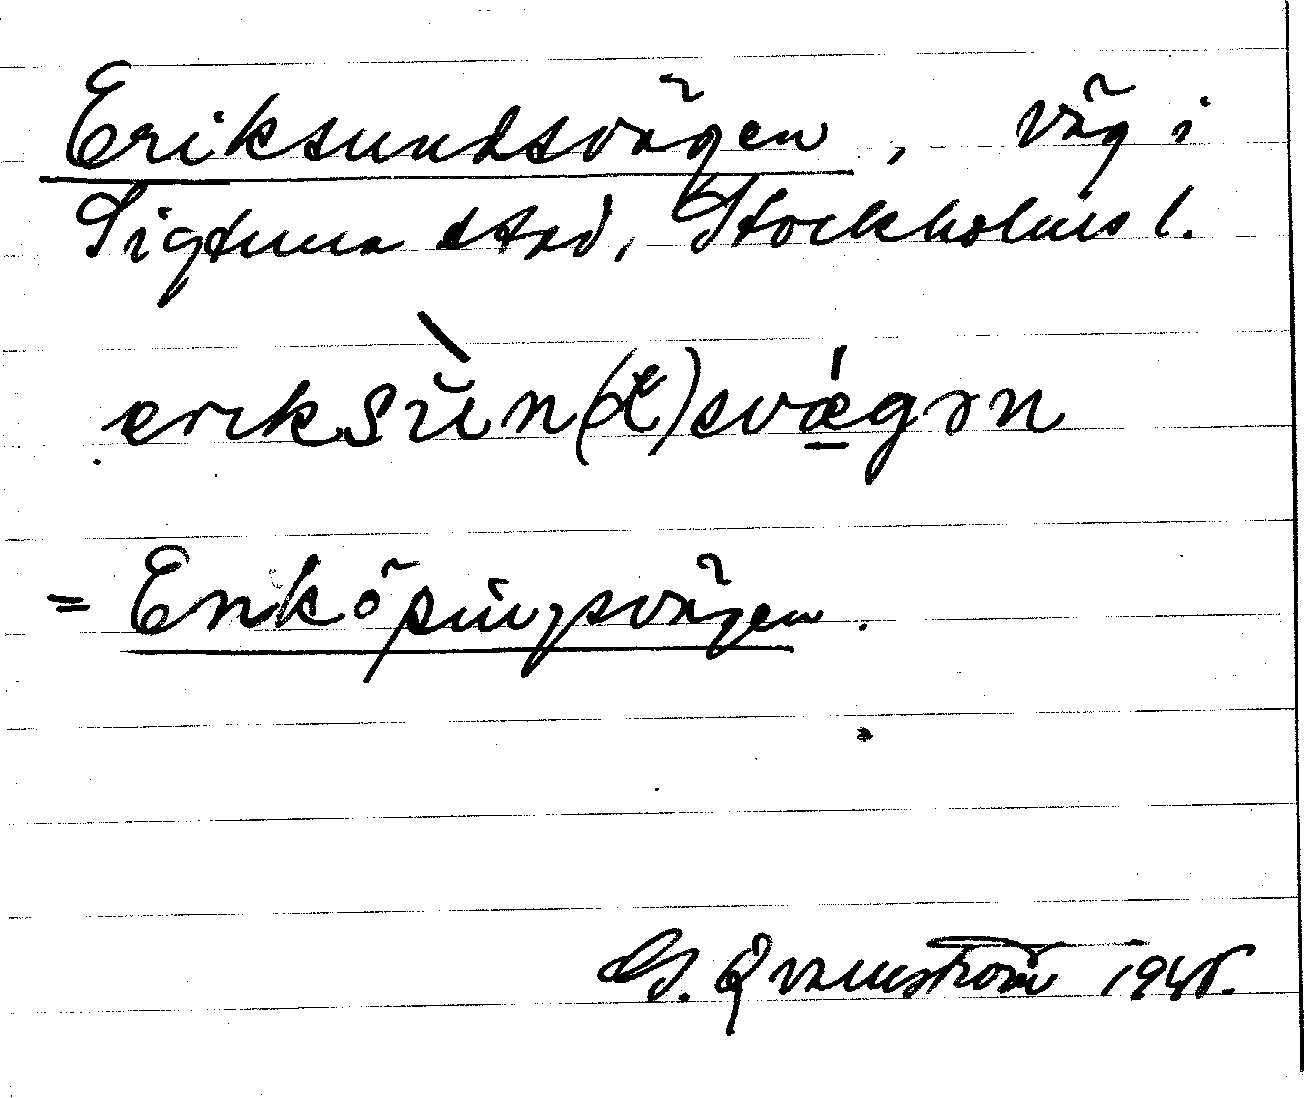 Eriksundsvägen, väg i
Sigtuna stad, Stockholms l.
eriksùn(t)svǽgən
= Enköpingsvägen.
G. Qvarnström 1945.